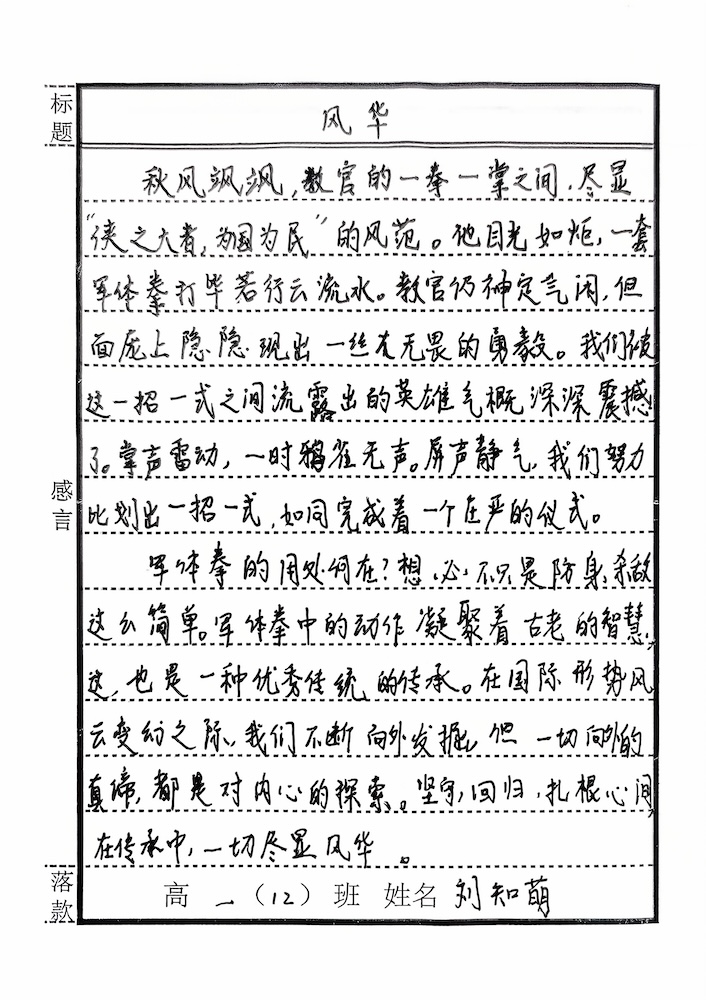 标题
风华
秋风飒飒，教官的一拳一掌之间，尽显
“侠之大者，为国为民”的风范。他目光如炬，一套
军体拳打毕若行云流水。教官仍神定气闲，但
面庞上隐隐现出一丝有无畏的勇毅。我们被
这一招一式之间流露出的英雄气概深深震撼
了。掌声雷动，一时鸦雀无声。屏声静气，我们努力
比划出一招一式，如同完成着一个庄严的仪式。
感言
军体拳的用处何在？想必不只是防身杀敌
这么简单。军体拳中的动作凝聚着古老的智慧，
这，也是一种优秀传统的传承。在国际形势风
云变幻之际，我们不断向外发掘，但一切向外的
真谛，都是对内心的探索。坚守，回归，扎根心间，
在传承中，一切尽显风华。
落款
高一（12）班 姓名 刘知萌